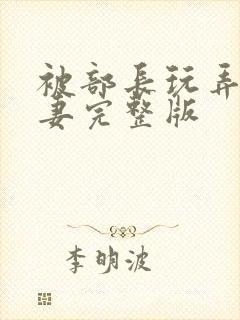 被部长玩弄
妻完整版
李明波